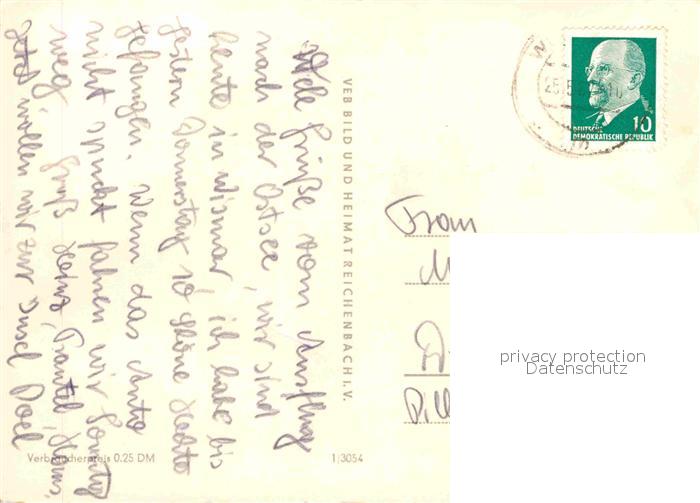 Viele Grüße vom Ausflug
nach der Ostsee, wir sind
heute in Wismar, ich habe bis
gestern Donnerstag 10 schöne Hechte
gefangen. Wenn das Auto
nicht spuckt fahren wir Sonntag
weg. Gruß Heinz, Trautel, Hans,
jetzt wollen wir zur Insel Poel
VEB BILD UND HEIMAT REICHENBACH I.V.
Verbraucherpreis 0.25 DM
1/3054
10
DEUTSCHE
DEMOKRATISCHE REPUBLIK
Frau
privacy protection
Datenschutz